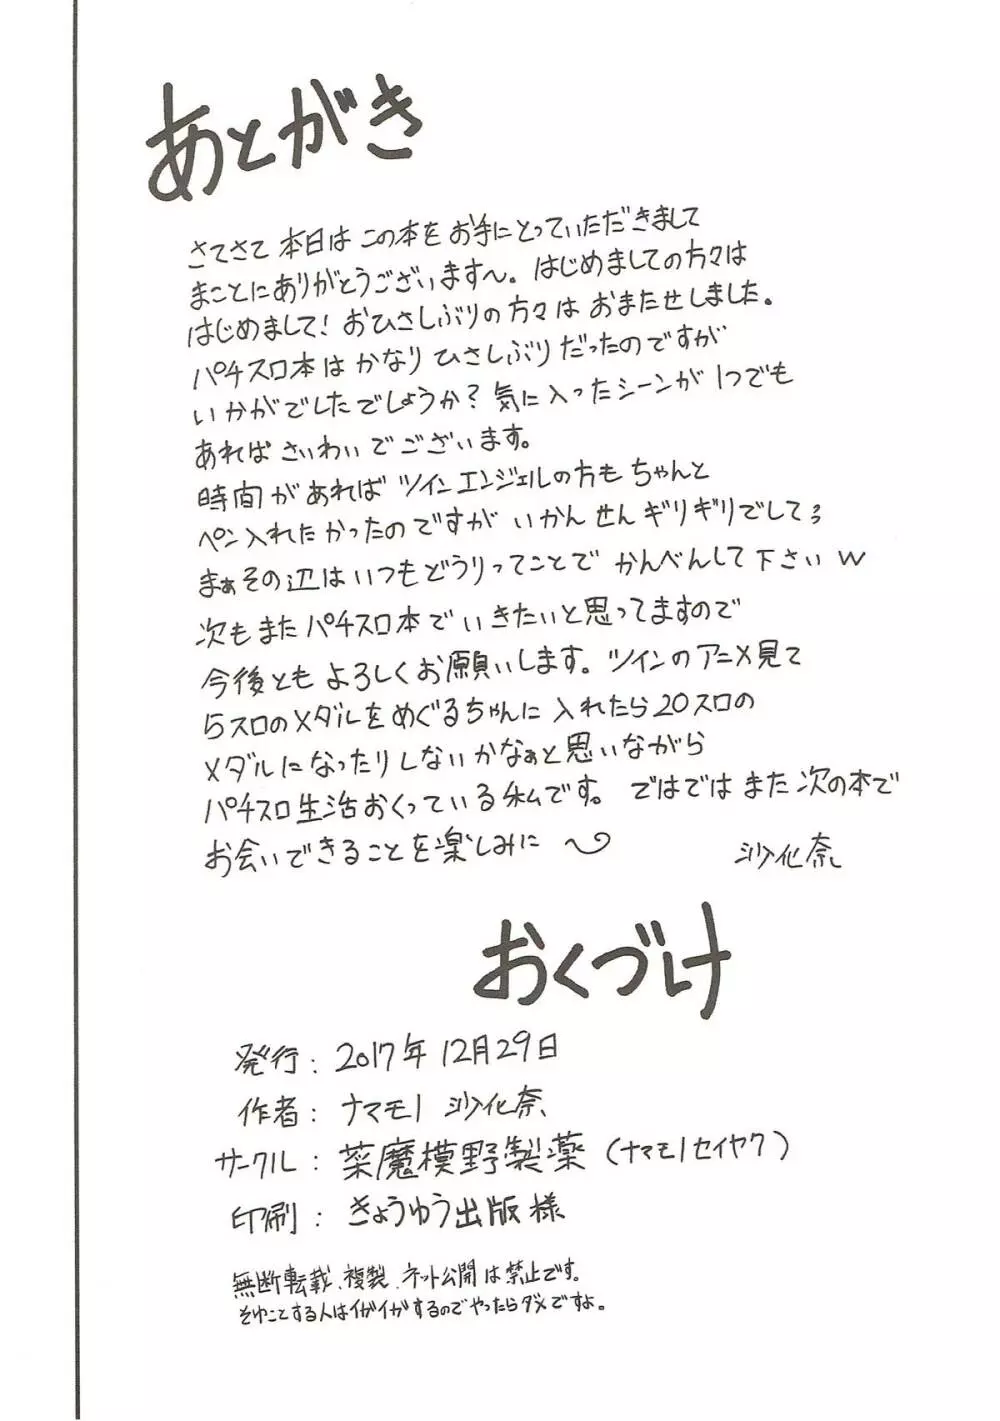 あとがき
さてさて 本日は この本を お手にとっていただきまして
まことにありがとうございます〜。はじめましての方々は
はじめまして！おひさしぶりの方々は おまたせしました。
パチスロ本は かなり ひさしぶりだったのですが
いかがでしたでしょうか？気に入ったシーンが 1つでも
あれば さいわいでございます。
時間があれば ツインエンジェルの方も ちゃんと
ペン入れたかったのですが いかんせんギリギリでしてろ
まぁその辺は いつもどうりってことで かんべんして下さいw
次もまた パチスロ本で いきたいと思ってますので
今後とも よろしくお願いします。ツインのアニメ見て
5スロのメダルをめぐるちゃんに 入れたら20スロの
メダルになったりしないかなぁと思いながら
パチスロ生活おくっている私です。ではでは また次の本で
お会いできることを楽しみに 〜
沙化奈
おくづけ
発行：2017年12月29日
作者：ナマモノ 沙化奈
サークル：菜魔模野製薬（ナマモノセイヤク）
印刷：きょうゆう出版様
無断転載、複製、ネット公開は禁止です。
そゆことする人はイガイガするのでやったらダメですよ。